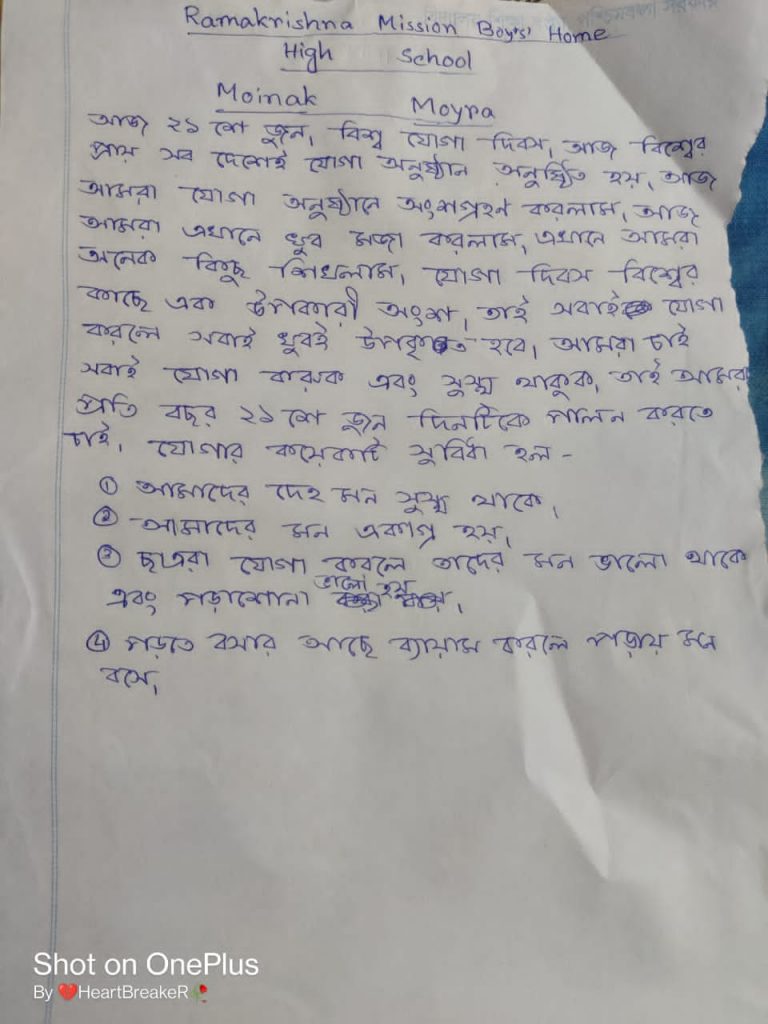 Ramakrishna Mission Boys' Home
High School
Moinak Moyra
আজ ২১ শে জুন, বিশ্ব যোগা দিবস, আজ বিশ্বের
প্রায় সব দেশেই যোগা অনুষ্ঠান অনুষ্ঠিত হয়, আজ
আমরা যোগা অনুষ্ঠানে অংশগ্রহণ করলাম, আজ
আমরা এখানে খুব মজা করলাম, এখানে আমরা
অনেক কিছু শিখলাম, যোগা দিবস বিশ্বের
কাছে এক উপকারী অংশ, তাই সবাই যোগা
করলে সবাই খুবই উপকৃত হবে, আমরা চাই
সবাই যোগা করুক এবং সুস্থ থাকুক, তাই আমরা
প্রতি বছর ২১ শে জুন দিনটিকে পালন করতে
চাই, যোগার কয়েকটি সুবিধা হল -
① আমাদের দেহ মন সুস্থ থাকে,
② আমাদের মন একাগ্র হয়,
③ ছাত্ররা যোগা করলে তাদের মন ভালো থাকে
এবং পড়াশোনা ভালো হয়,
④ পড়তে বসার আছে ব্যায়াম করলে পড়ায় মন
বসে,
Shot on OnePlus
By ❤️HeartBreakeR🥀